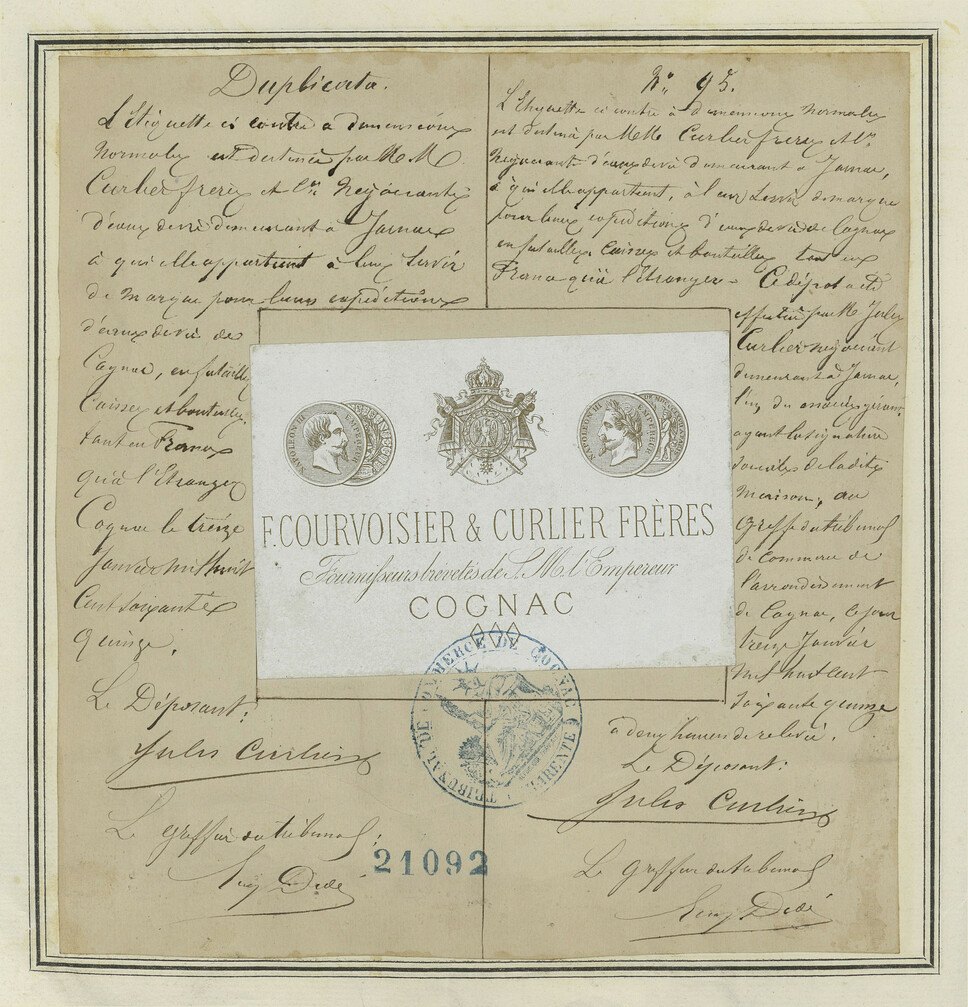 Duplicata.
L'Etiquette ci contre à dimensions
normales est destinée par M M
Curlier freres et Cie Négociants
d'eaux de vie demeurant à Jarnac
à qui elle appartient à leur servir
de marque pour leurs expéditions
d'eaux de vie de
Cognac, en futailles
Caisses et bouteilles
tant en France
qu'à l'Etranger
Cognac le treize
Janvier mil huit
Cent soixante
quinze.
Le Déposant:
Jules Curlier
Le greffier du tribunal:
Dédé
No 95.
L'Etiquette ci contre à dimensions normales
est destinée par M M Curlier freres et Cie
Négociants d'eaux de vie demeurant à Jarnac,
à qui elle appartient, à leur servir de marque
pour leurs expéditions d'eaux de vie de Cognac
en futailles, Caisses et bouteilles tant en
France qu'à l'Etranger - Ce dépot a été
effectué par M Jules
Curlier négociant
demeurant à Jarnac,
l'un des associés gérants
ayant la signature
sociale de ladite
maison, au
Greffe du tribunal
de Commerce de
l'arrondissement
de Cognac, le jour
treize Janvier
mil huit cent
soixante quinze
à deux heures de relevée.
Le Déposant:
Jules Curlier
Le greffier du tribunal
Dédé
NAPOLEON III EMPEREUR
NAPOLEON III EMPEREUR
F. COURVOISIER & CURLIER FRÈRES
Fournisseurs brevetés de S. M. l'Empereur
COGNAC
TRIBUNAL DE COMMERCE DE COGNAC (CHARENTE)
21092